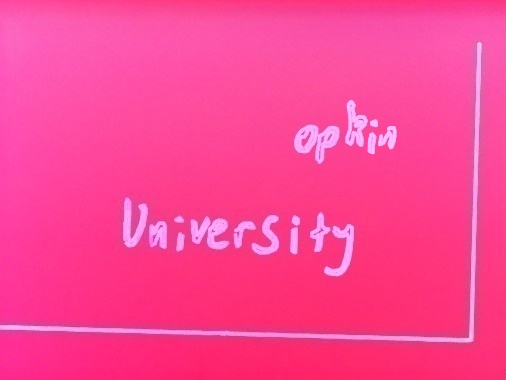 opkin
University